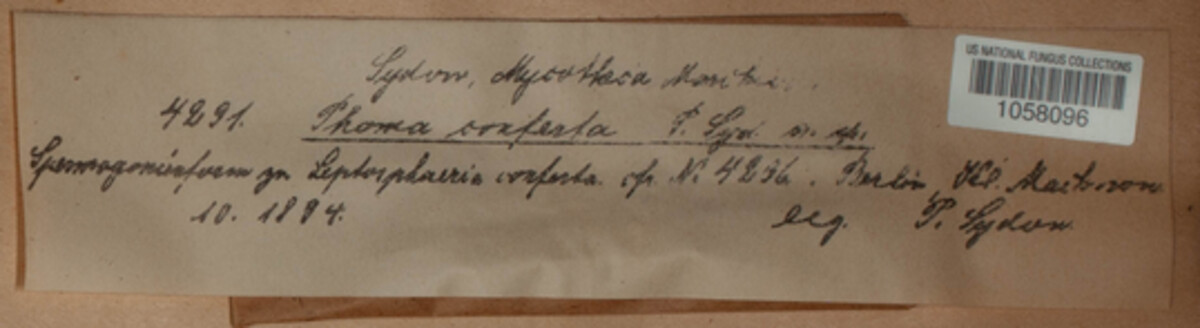 Sydow, Mycotheca Marchica.
US NATIONAL FUNGUS COLLECTIONS
1058096
4291. Phoma conferta P. Syd. n. sp.
Spermogonienform zu Leptosphaeria conferta. cfr. N. 4276. Berlin, Kl.
10. 1894. leg. P. Sydow